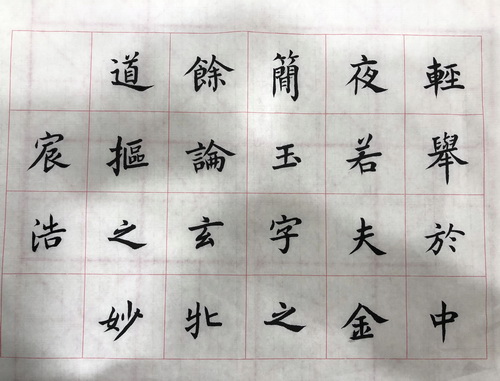 輕舉於中
夜若夫金
簡玉字之
餘論玄牝
道摳之妙
宸浩